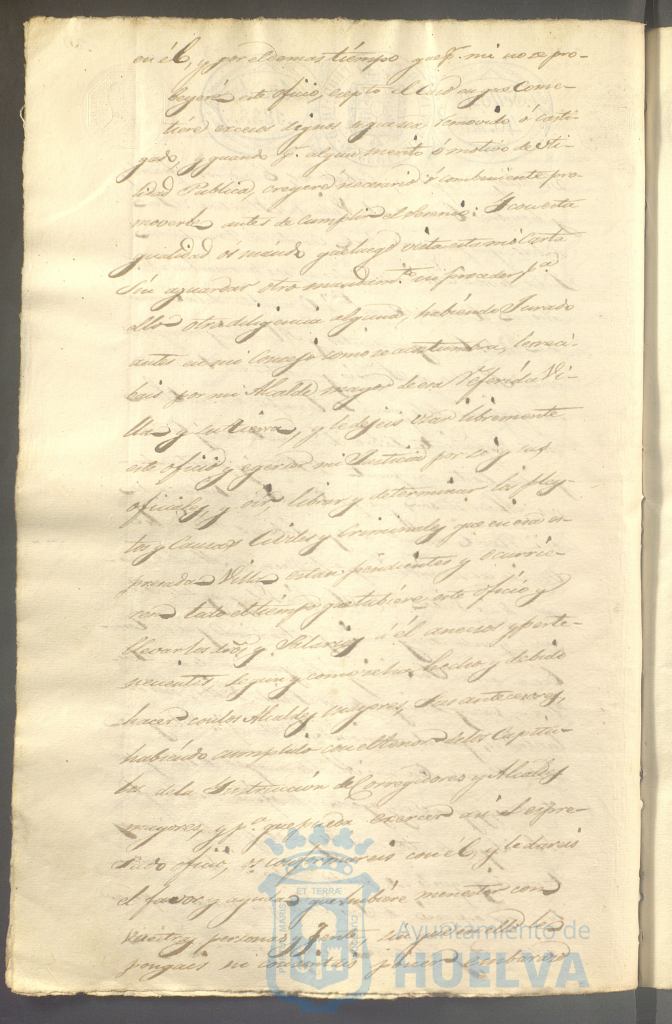 en él, y por el demas tiempo que pr. mi no se pro-
beyere este oficio, exepto el caso en que come-
tiere excesos dignos de que sea removido ó casti-
gado, y quando pr. algun merito ó motivo de uti-
lidad Publica, creyere necesario ó combeniente pro-
moverle antes de cumplir el sexenio: Y con esta
qualidad os mando que luego vista esta mi Carta
sin aguardar otro mandamto. ni proceder pa.
ello otra diligencia alguna, habiendo Jurado
antes en mi Consejo como se acostumbra, le reci-
bais por mi Alcalde mayor de esa referida Vi-
lla y su tierra, y le dejeis usar libremente
este oficio y egercer mi Justicia por sí y sus
oficiales, y oir librar y determinar los pley-
tos y Causas Civiles y Criminales que en esa es-
presada Villa estan pendientes y ocurrie-
ren todo el tiempo que tubiere este oficio y
llevar los dros. y Salarios á él anexos y perte-
necientes segun y como se ha hecho y debido
hacer con los Alcaldes mayores, sus antecesores,
habiendo cumplido con el tenor de los Capitu-
los de la Instruccion de Corregidores y Alcaldes
mayores, y pa. que pueda exercer así el espre-
sado oficio, os conformareis con el, y le dareis
el favor y ayuda que hubiere menester con
vuestras personas y gente sin que en ello le
pongais ni consintais poner embarazo
PORTUS MARIS ET TERRÆ CUSTODIA
Ayuntamiento de
HUELVA